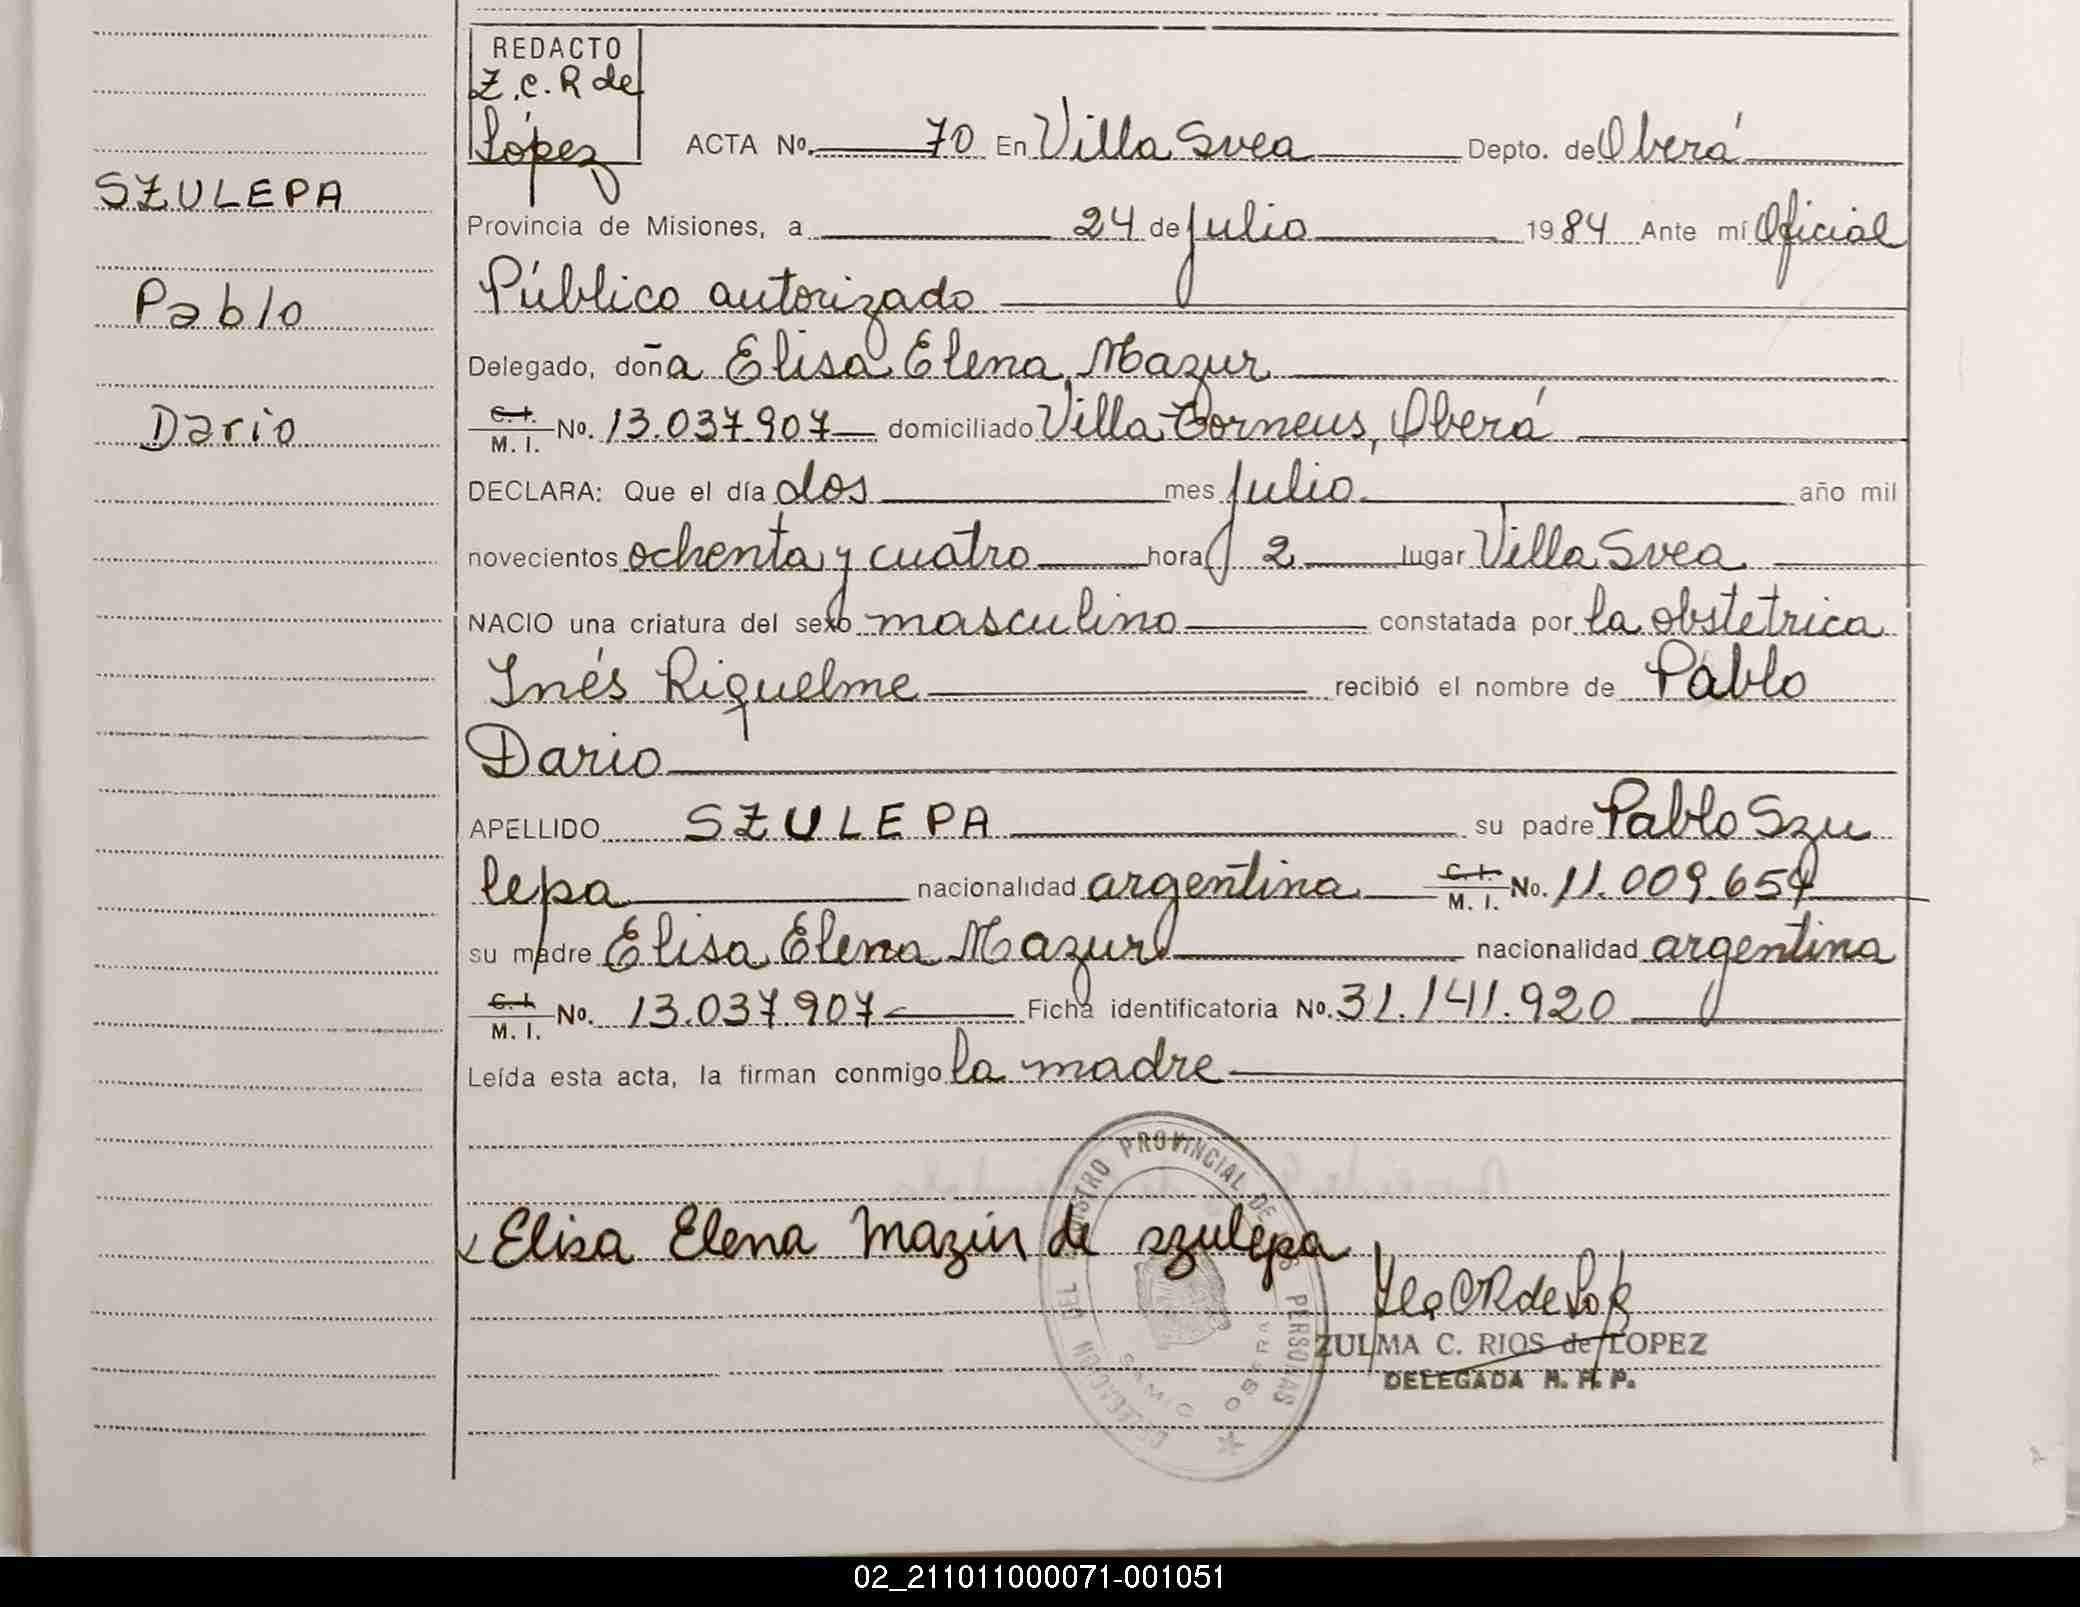 REDACTO
Z.C.R de
López
ACTA No. 70 En Villa Svea Depto. de Oberá
SZULEPA
Provincia de Misiones, a 24 de julio 1984 Ante mí Oficial
Público autorizado
Pablo
Delegado, doña Elisa Elena Mazur
Dario
C.I. M.I. No. 13.037.907 domiciliado Villa Torneus, Oberá
DECLARA: Que el día dos mes julio año mil
novecientos ochenta y cuatro hora 2 lugar Villa Svea
NACIO una criatura del sexo masculino constatada por la obstetrica
Inés Riquelme recibió el nombre de Pablo
Dario
APELLIDO SZULEPA su padre Pablo Szu
lepa nacionalidad argentina C.I. M.I. No. 11.009.654
su madre Elisa Elena Mazur nacionalidad argentina
C.I. M.I. No. 13.037.907 Ficha identificatoria No. 31.141.920
Leída esta acta, la firman conmigo la madre
Elisa Elena Mazur de Szulepa
DELEGACION DEL REGISTRO PROVINCIAL DE LAS PERSONAS
OBERA
ZULMA C. RIOS de LOPEZ
DELEGADA R. P. P.
02_211011000071-001051